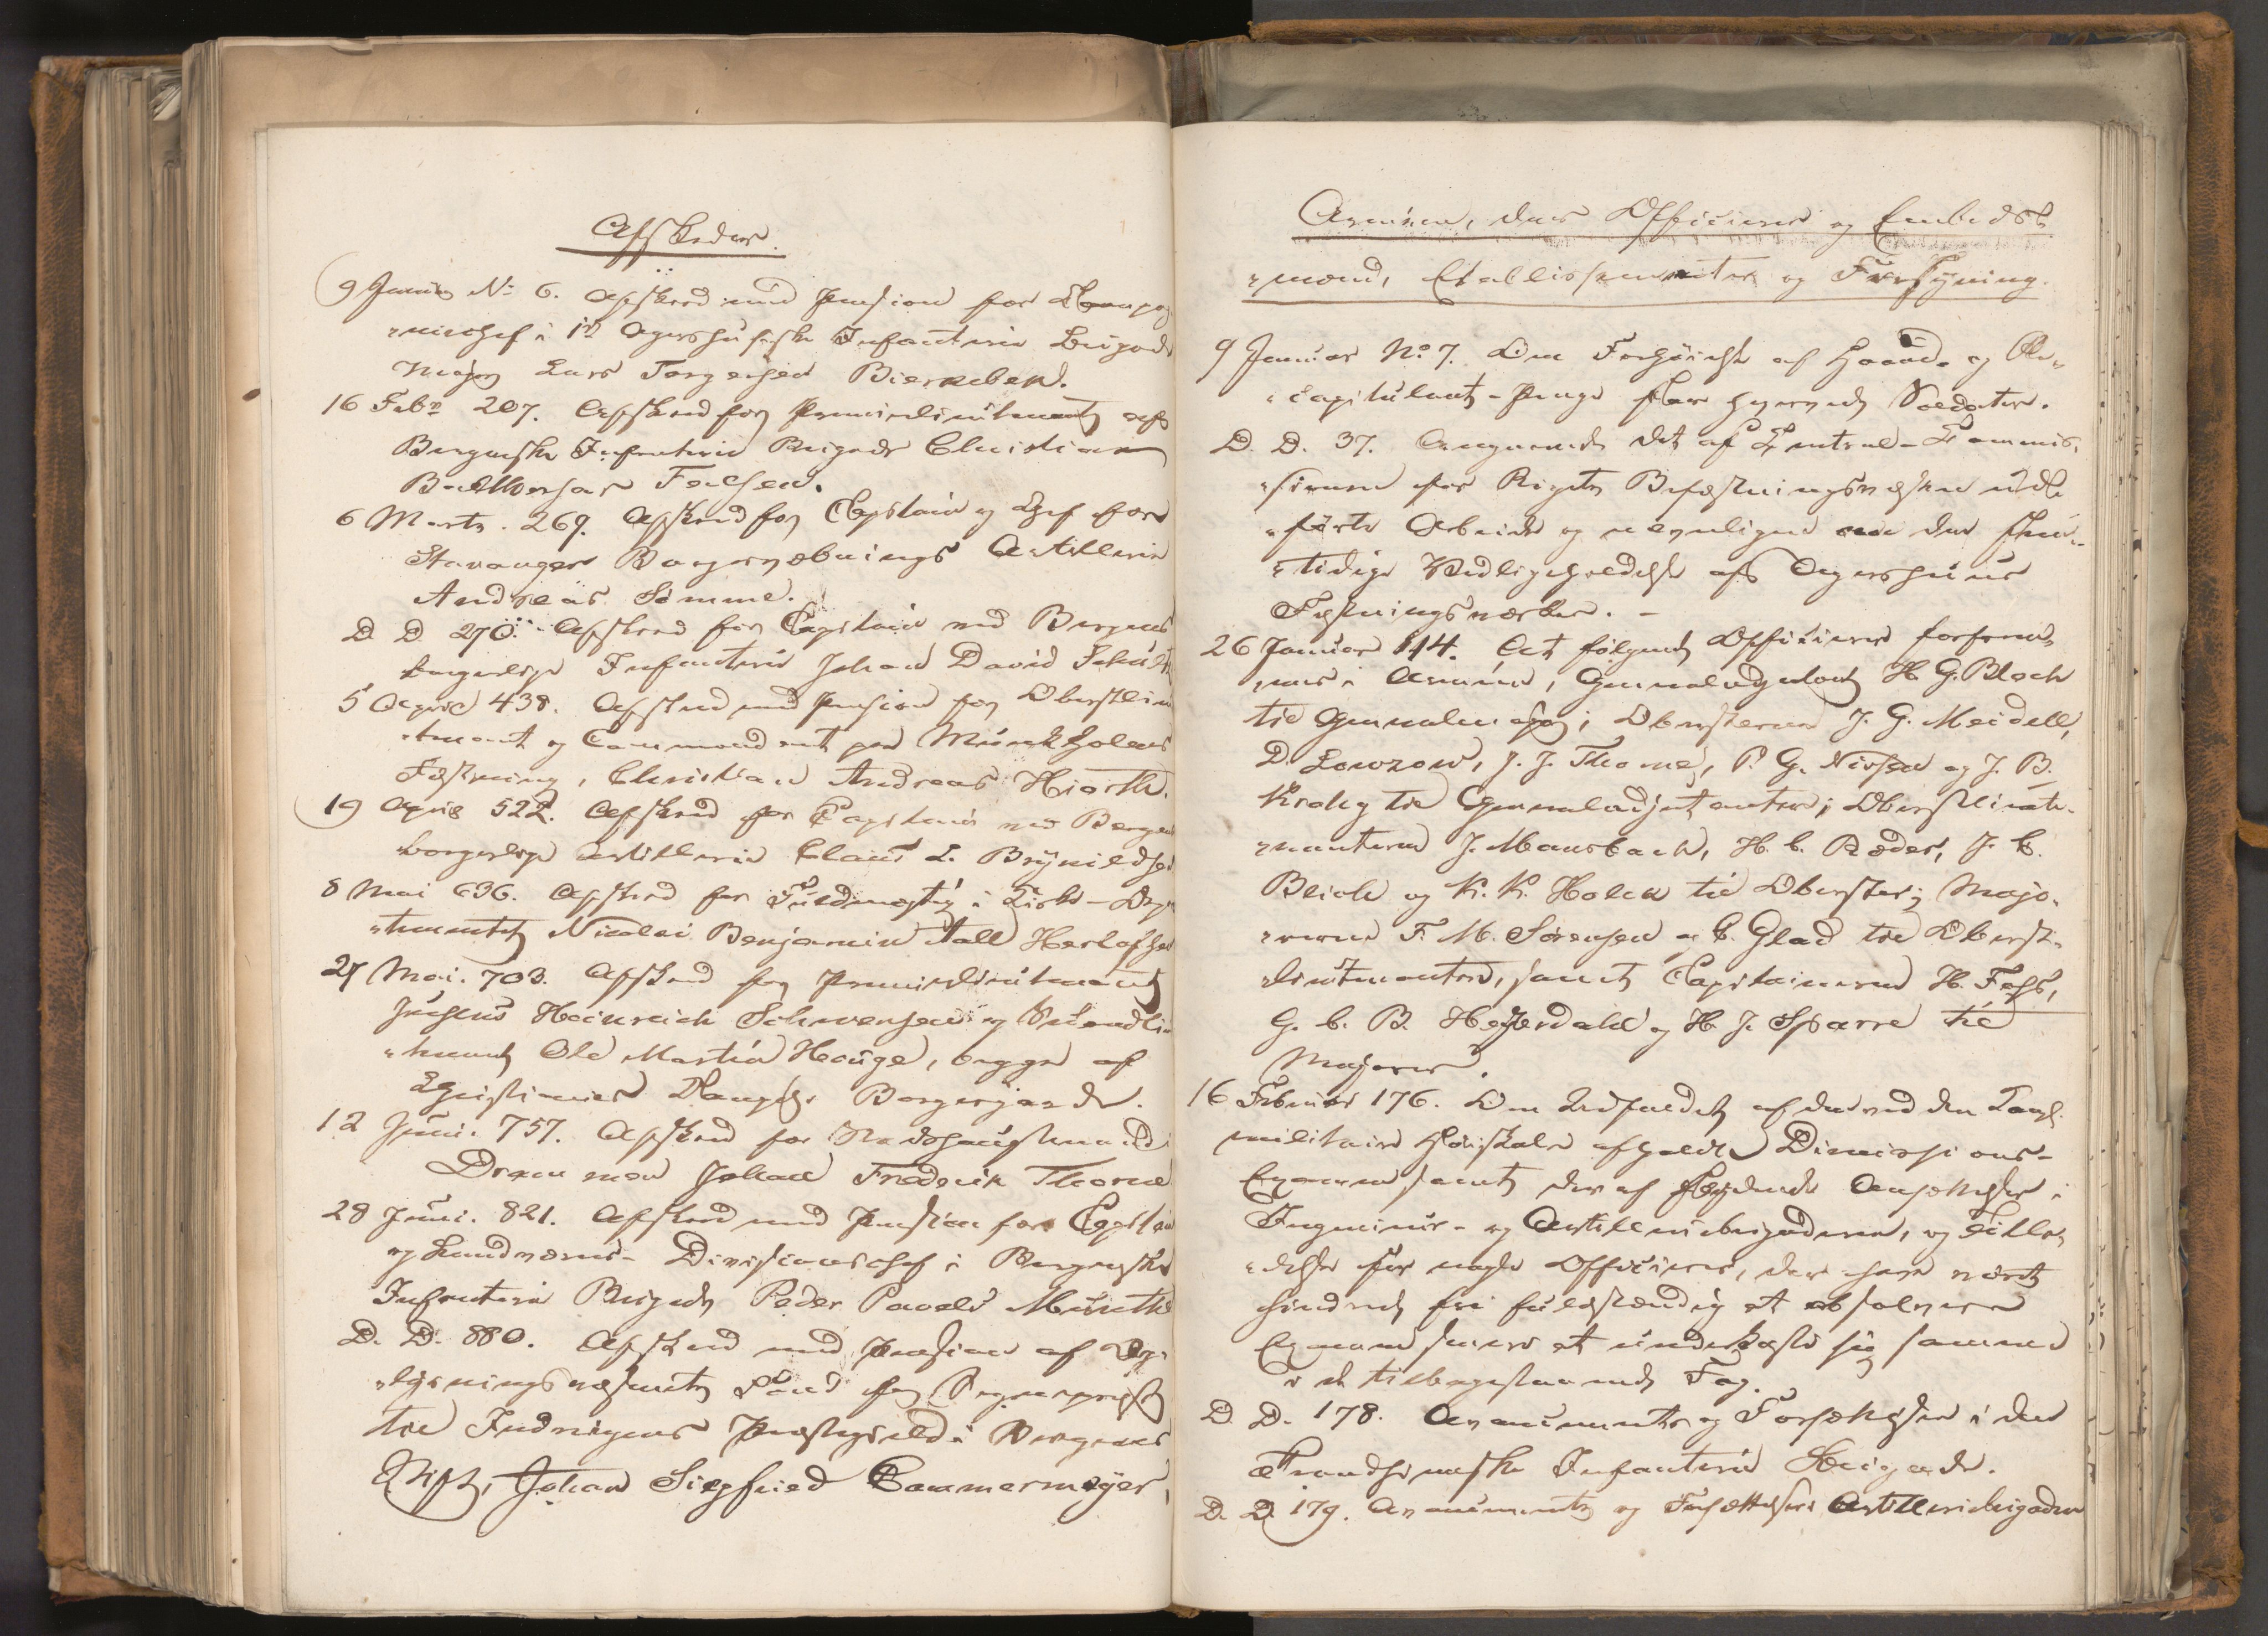 Afskeder.
9 Januar No 6. Afskeed med Pension for Kompag¬
„niechef i 1ste Agershusiske Infanterie Brigade
Major Lars Torgersen Biernebek.
16 Febr 207. Afskeed for Premierlieutenant af
Bergenske Infanterie Brigade Christian
Falsen.
6 Marts. 269. Afskeed for Capitain og Chef for
Stavanger Borgervæbnings Artillerie
Andreas Sømme.
D. D. 270. Afskeed for Capitain ved Bergens
borgerlige Infanterie Johan David Schultz
5 April 438. Afskeed med Pension for Oberstlieu
„tenant og Commandant paa Munkholmens
Fæstning, Christian Andreas Hiorth.
19 April 522. Afskeed for Capitain ved Bergens
borgerlige Artillerie Claus L. Brynildsen
8 Mai 636. Afskeed for Fuldmægtig i Kirke-Depar
„tementet Nicolai Benjamin Aall Herlofsen
27 Mai. 703. Afskeed for Premierlieutenant
Heinrich Schwensen og Secondlieu
„tenant Ole Martin Hauge, begge af
Christiania Borgergarde.
12 Juni. 757. Afskeed for Raadhuusmand i
Drammen Johan Frederik Thorne
28 Juni. 821. Afskeed med Pension for Capitain
og Landværns-Divisionschef i Bergenske
Infanterie Brigade Peder Pavels Münthe
D. D. 880. Afskeed med Pension af Op¬
„lysningsvæsenets Fond for Sogneprest
til Indvigens Præstegield i Bergens
Stift, Johan Siegfried Cammermeyer,
Armeen, dens Officierer og Embeds¬
„mænd, Etablissementer og Forsyning.
9 Januar No 7. Om Forhøielse af Haand- og Re¬
„capitulant-Penge for hververede Soldater.
D. D. 37. Angaaende det af Central-Commis¬
„sionen for Rigets Befæstningsvæsen ud¬
„førte Arbeide og navnligen om den frem¬
„tidige Vedligeholdelse af Agershuus
Fæstningsværker. -
26 Januar 114. At følgende Officierer forfrem¬
mes i Armeen, Generaladjutant H. G. Bloch
til Generalmajor; Obersterne J. G. Meidell,
D. Lowzow, J. J. Thorne, P. G. Nissen og J. B.
Krohg til Generaladjutanter; Oberstlieute¬
„nanterne J. Mansbach, H. C. Ræder, J. C.
Blich og K. K. Holck til Oberster; Majo¬
„rerne F. M. Sørensen og C. Glad til Oberst¬
„lieutenanter, samt Capitainerne H. Fasß,
G. C. B. Heyerdahl og H. J. Sparre til
Majorer.
16 Februar 176. Om Udfaldet af den ved den Kongl.
militaire Høiskole afholdte Dimissions-
Examen samt deraf flydende Ansættelser i
Ingenieur- og Artilleriebrigaderne, og Tilla¬
„delse for nogle Officierer, der have været
hindrede fra fuldstændig at absolvere
Examen senere at underkaste sig samme
i de tilbagestaaende Fag.
D. D. 178. Avancements og Forsættelser i den
Trondhjemske Infanterie Brigade.
D. D. 179. Avancements og Forsættelser i Artilleriebrigaden